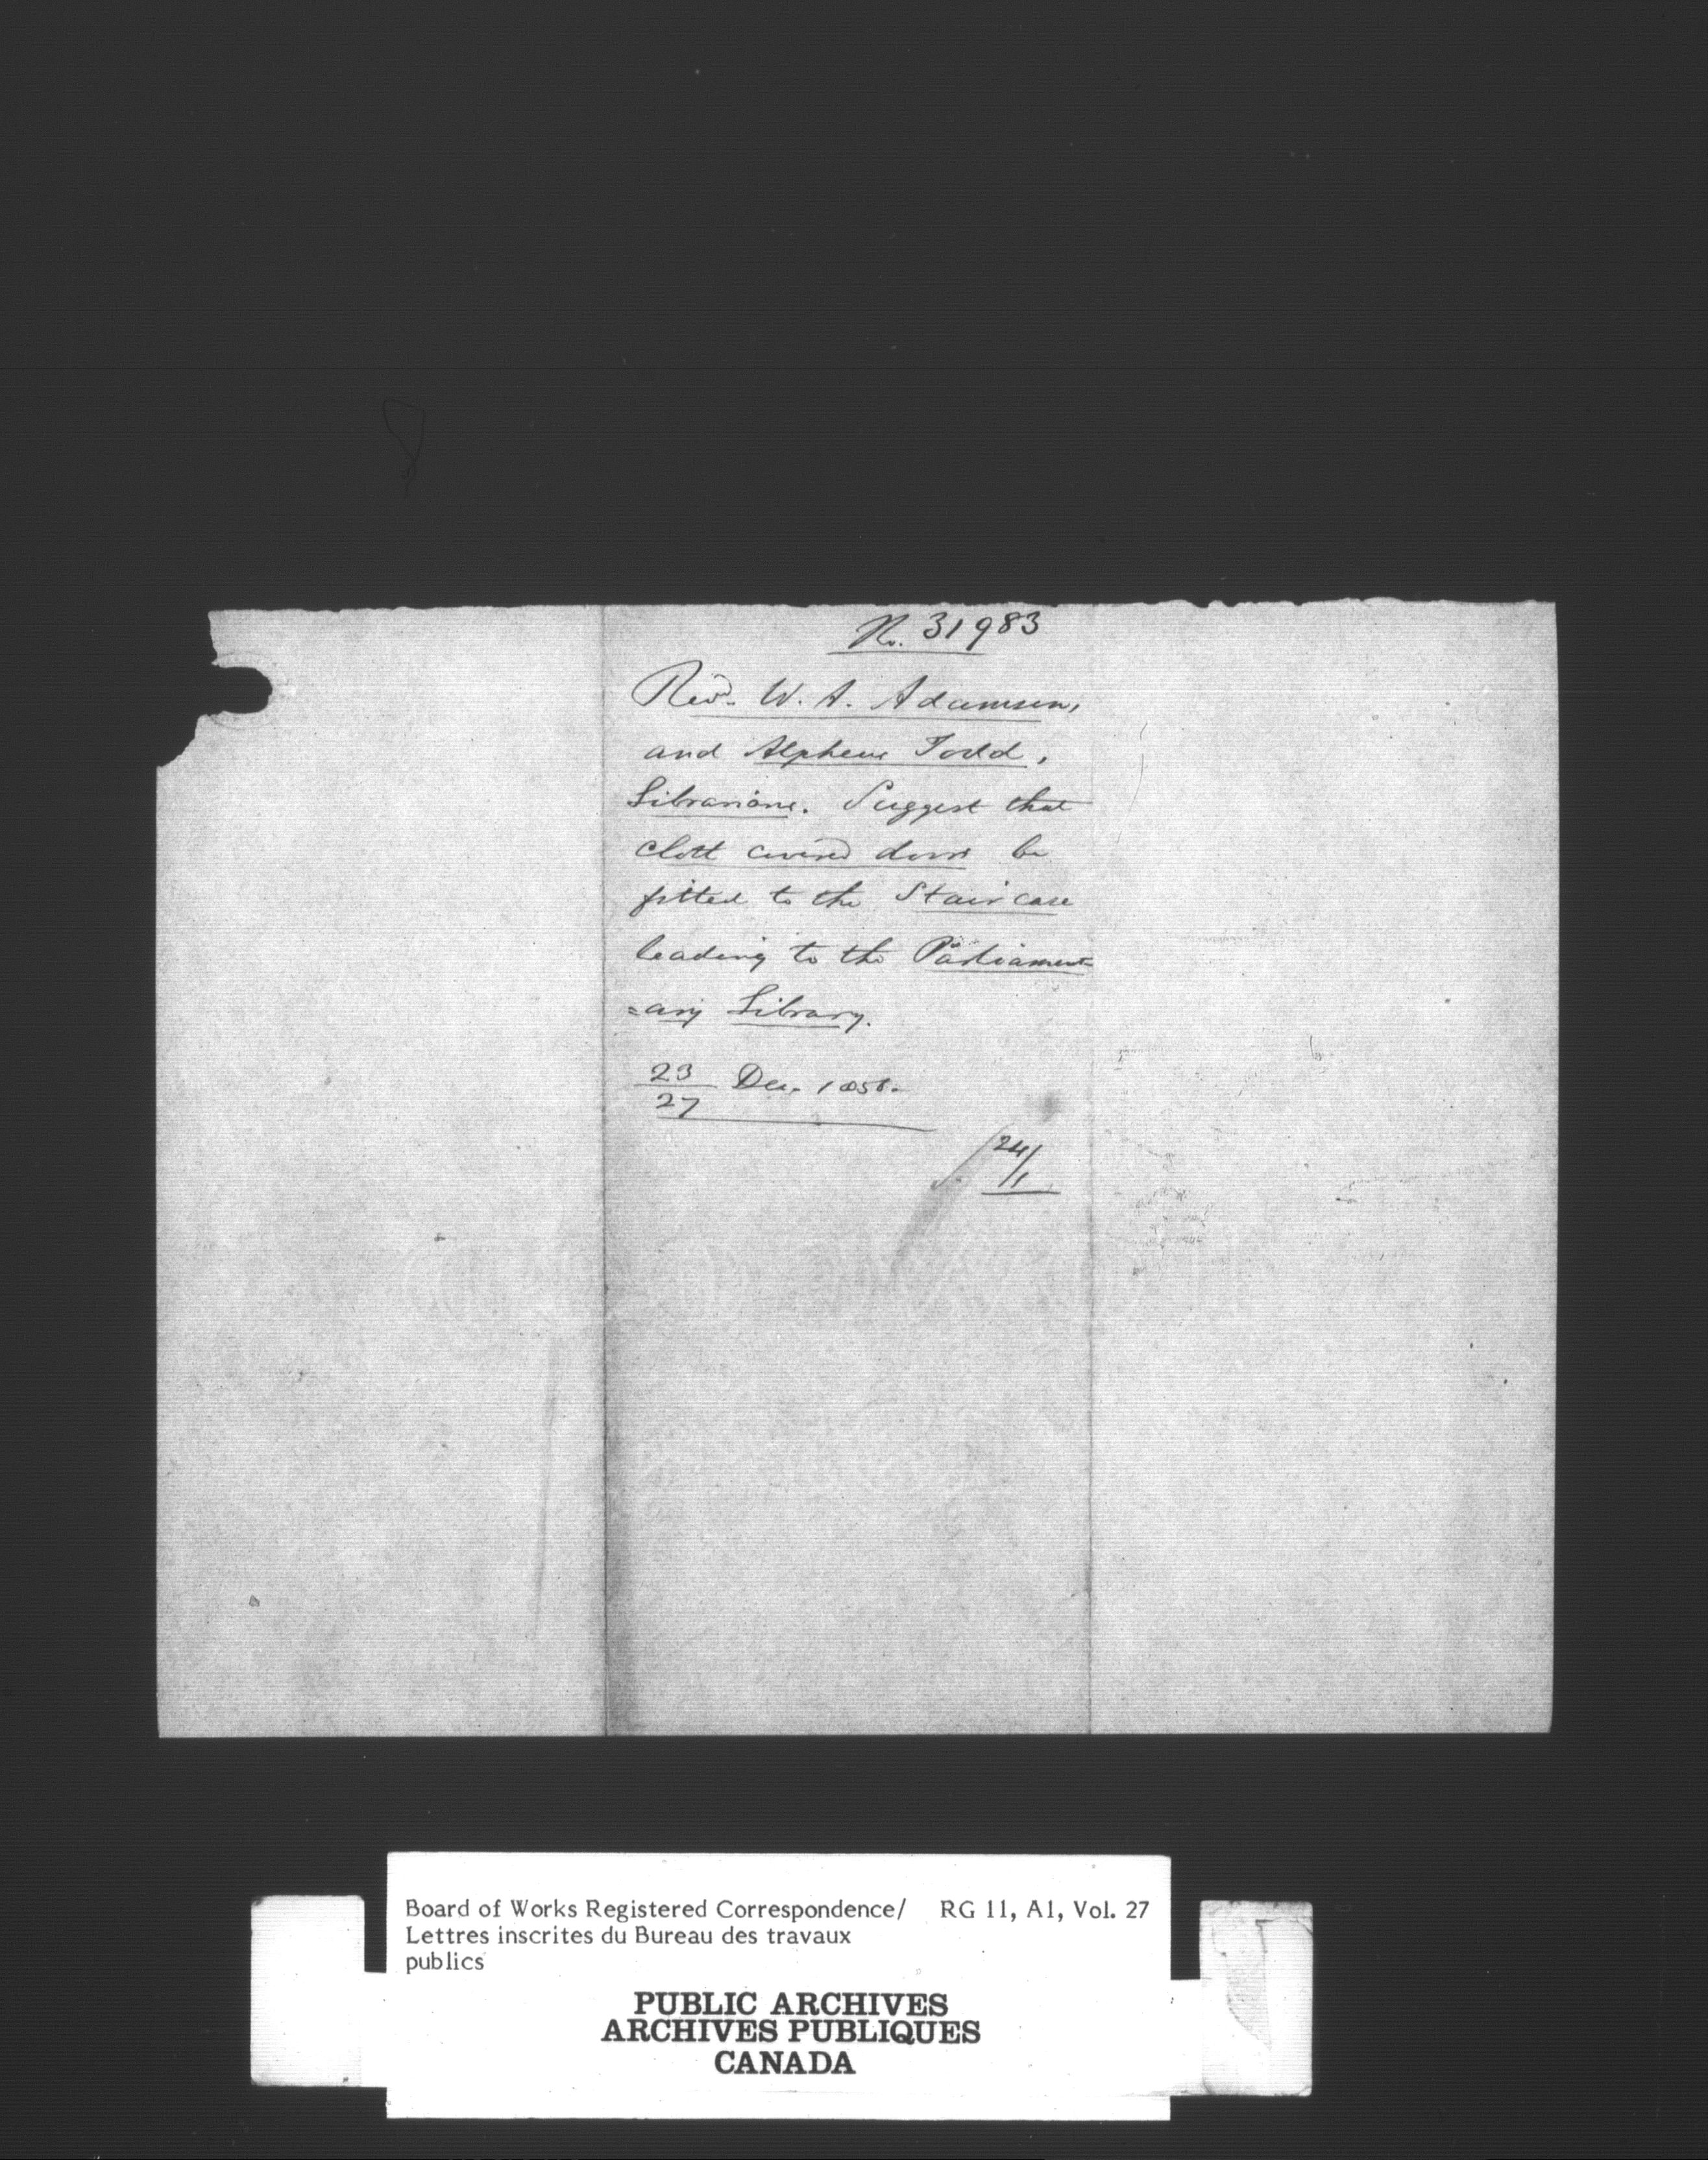 No. 31983
Revd. W. A. Adamson,
and Alpheus Todd,
Librarians. Suggest that
cloth covered doors be
fitted to the Stair case
leading to the Parliament=
=ary Library.
23
27 Dec. 1856.
24/1
Board of Works Registered Correspondence/ RG 11, A1, Vol. 27
Lettres inscrites du Bureau des travaux
publics
PUBLIC ARCHIVES
ARCHIVES PUBLIQUES
CANADA